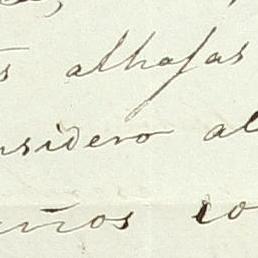 s alhajas
nsidero al
eños co